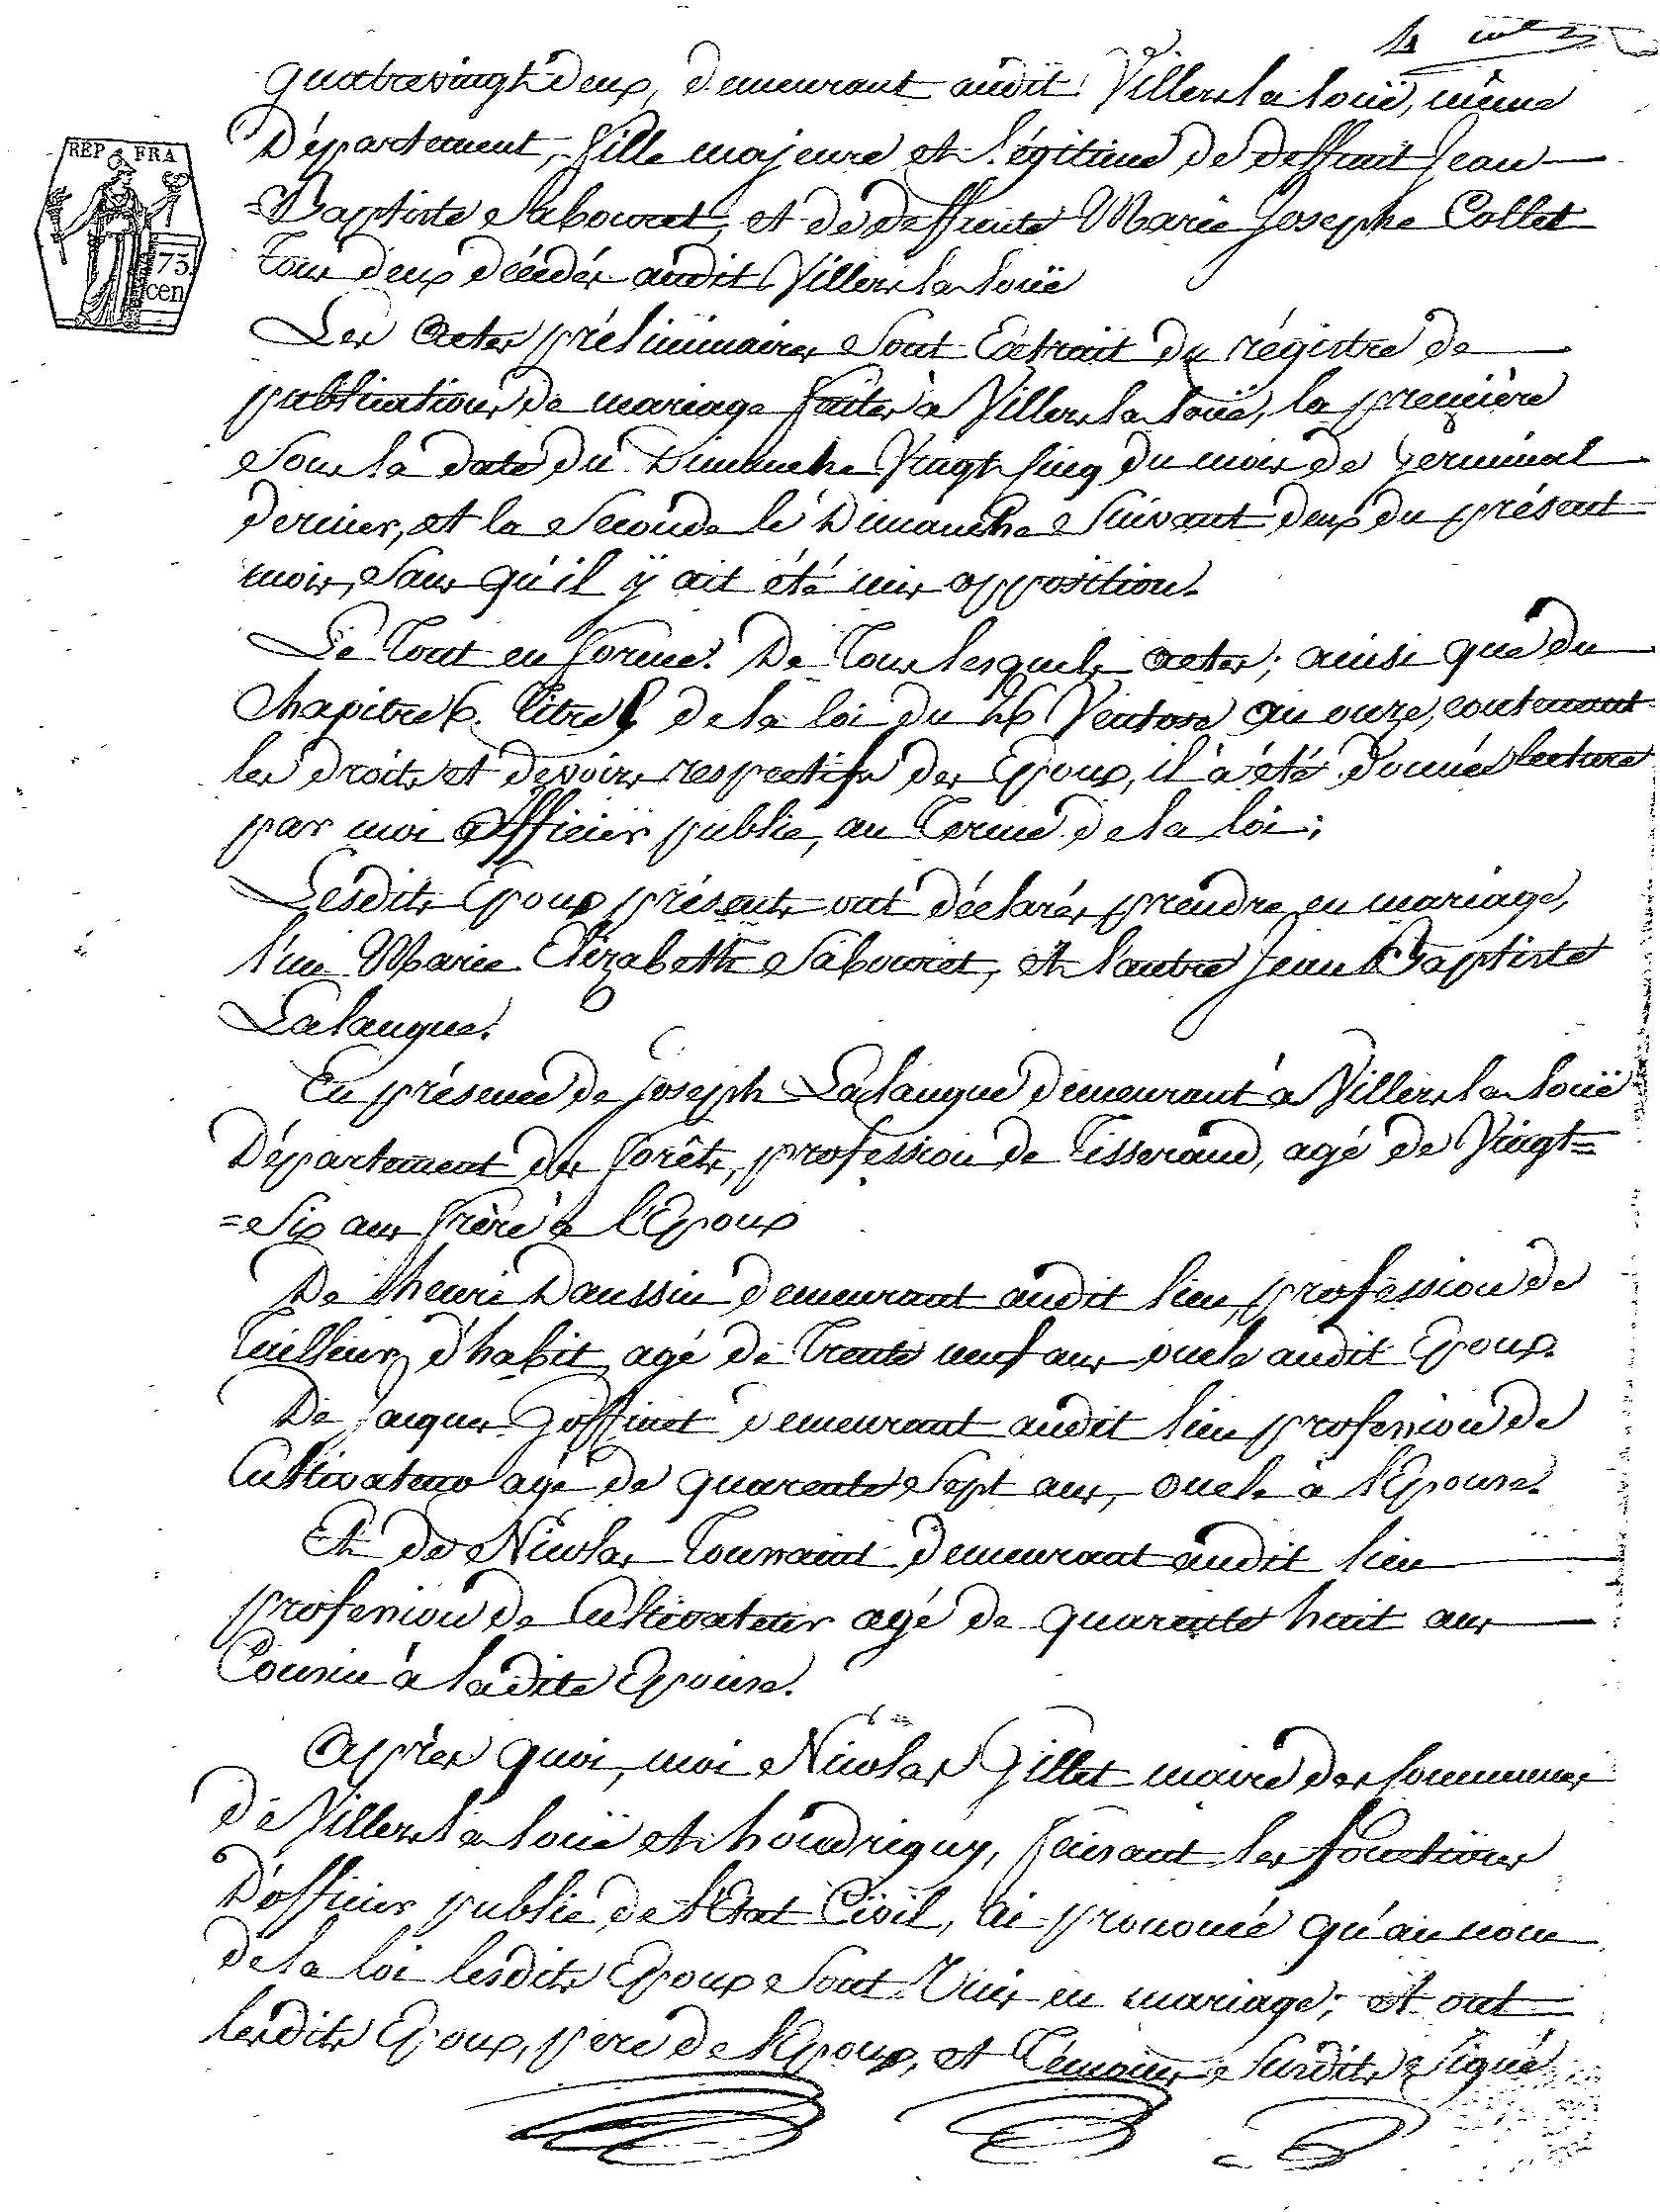 quatrevingt deux, demeurant audit Villers la louë, même
REP. FRA
75.
cen
Département, fille majeure et légitime de deffunt Jean
=Baptiste Sabouret, et de deffunte Marie Josephe Collet
Tous deux décédés audit Villers la louë
Les Actes préliminaires sont Extrait du régistre de
publications de mariage faites à Villers la louë, la première
sous la date du Dimanche Vingt cinq du mois de Germinal
dernier, et la seconde le Dimanche suivant deux du présent
mois, sans qu'il ÿ ait été mis opposition.
Le Tout en forme. De Tous lesquels actes; ainsi que du
Chapitre 6. titre 5 de la loi du 26 Ventose an onze, contenant
les droits et devoirs respectifs des Epoux, il à été donnée lecture
par moi Officier public, au Terme de la loi;
Lesdits Epoux présents ont déclarés prendre en mariage,
l'un Marie Elizabeth Sabouret, et l'autre Jean Baptiste
Lalangue.
En présence de Joseph Lalangue demeurant à Villers la louë
Département des forêts, profession de Tisserand, agé de Vingt=
=Six ans frère à l'Epoux
De henri Daussin demeurant audit lieu, profession de
Tailleur d'habit agé de Trente neuf ans oncle audit Epoux.
De Jacques Goffinet demeurant audit lieu profession de
Cultivateur agé de quarente Sept ans, oncle à l'Epouse.
Et de Nicolas Toussaint demeurant audit lieu
profession de Cultivateur agé de quarente huit ans
Cousin à ladite Epouse.
Après quoi, moi Nicolas Gillet maire des Communes
de Villers la louë et houdrigny, faisant les fonctions
D'officier public de l'Etat Civil, ai prononcé qu'au nom
de la loi lesdits Epoux sont Unis en mariage; et ont
lesdits Epoux, père de l'Epoux, et Témoins susdits signé